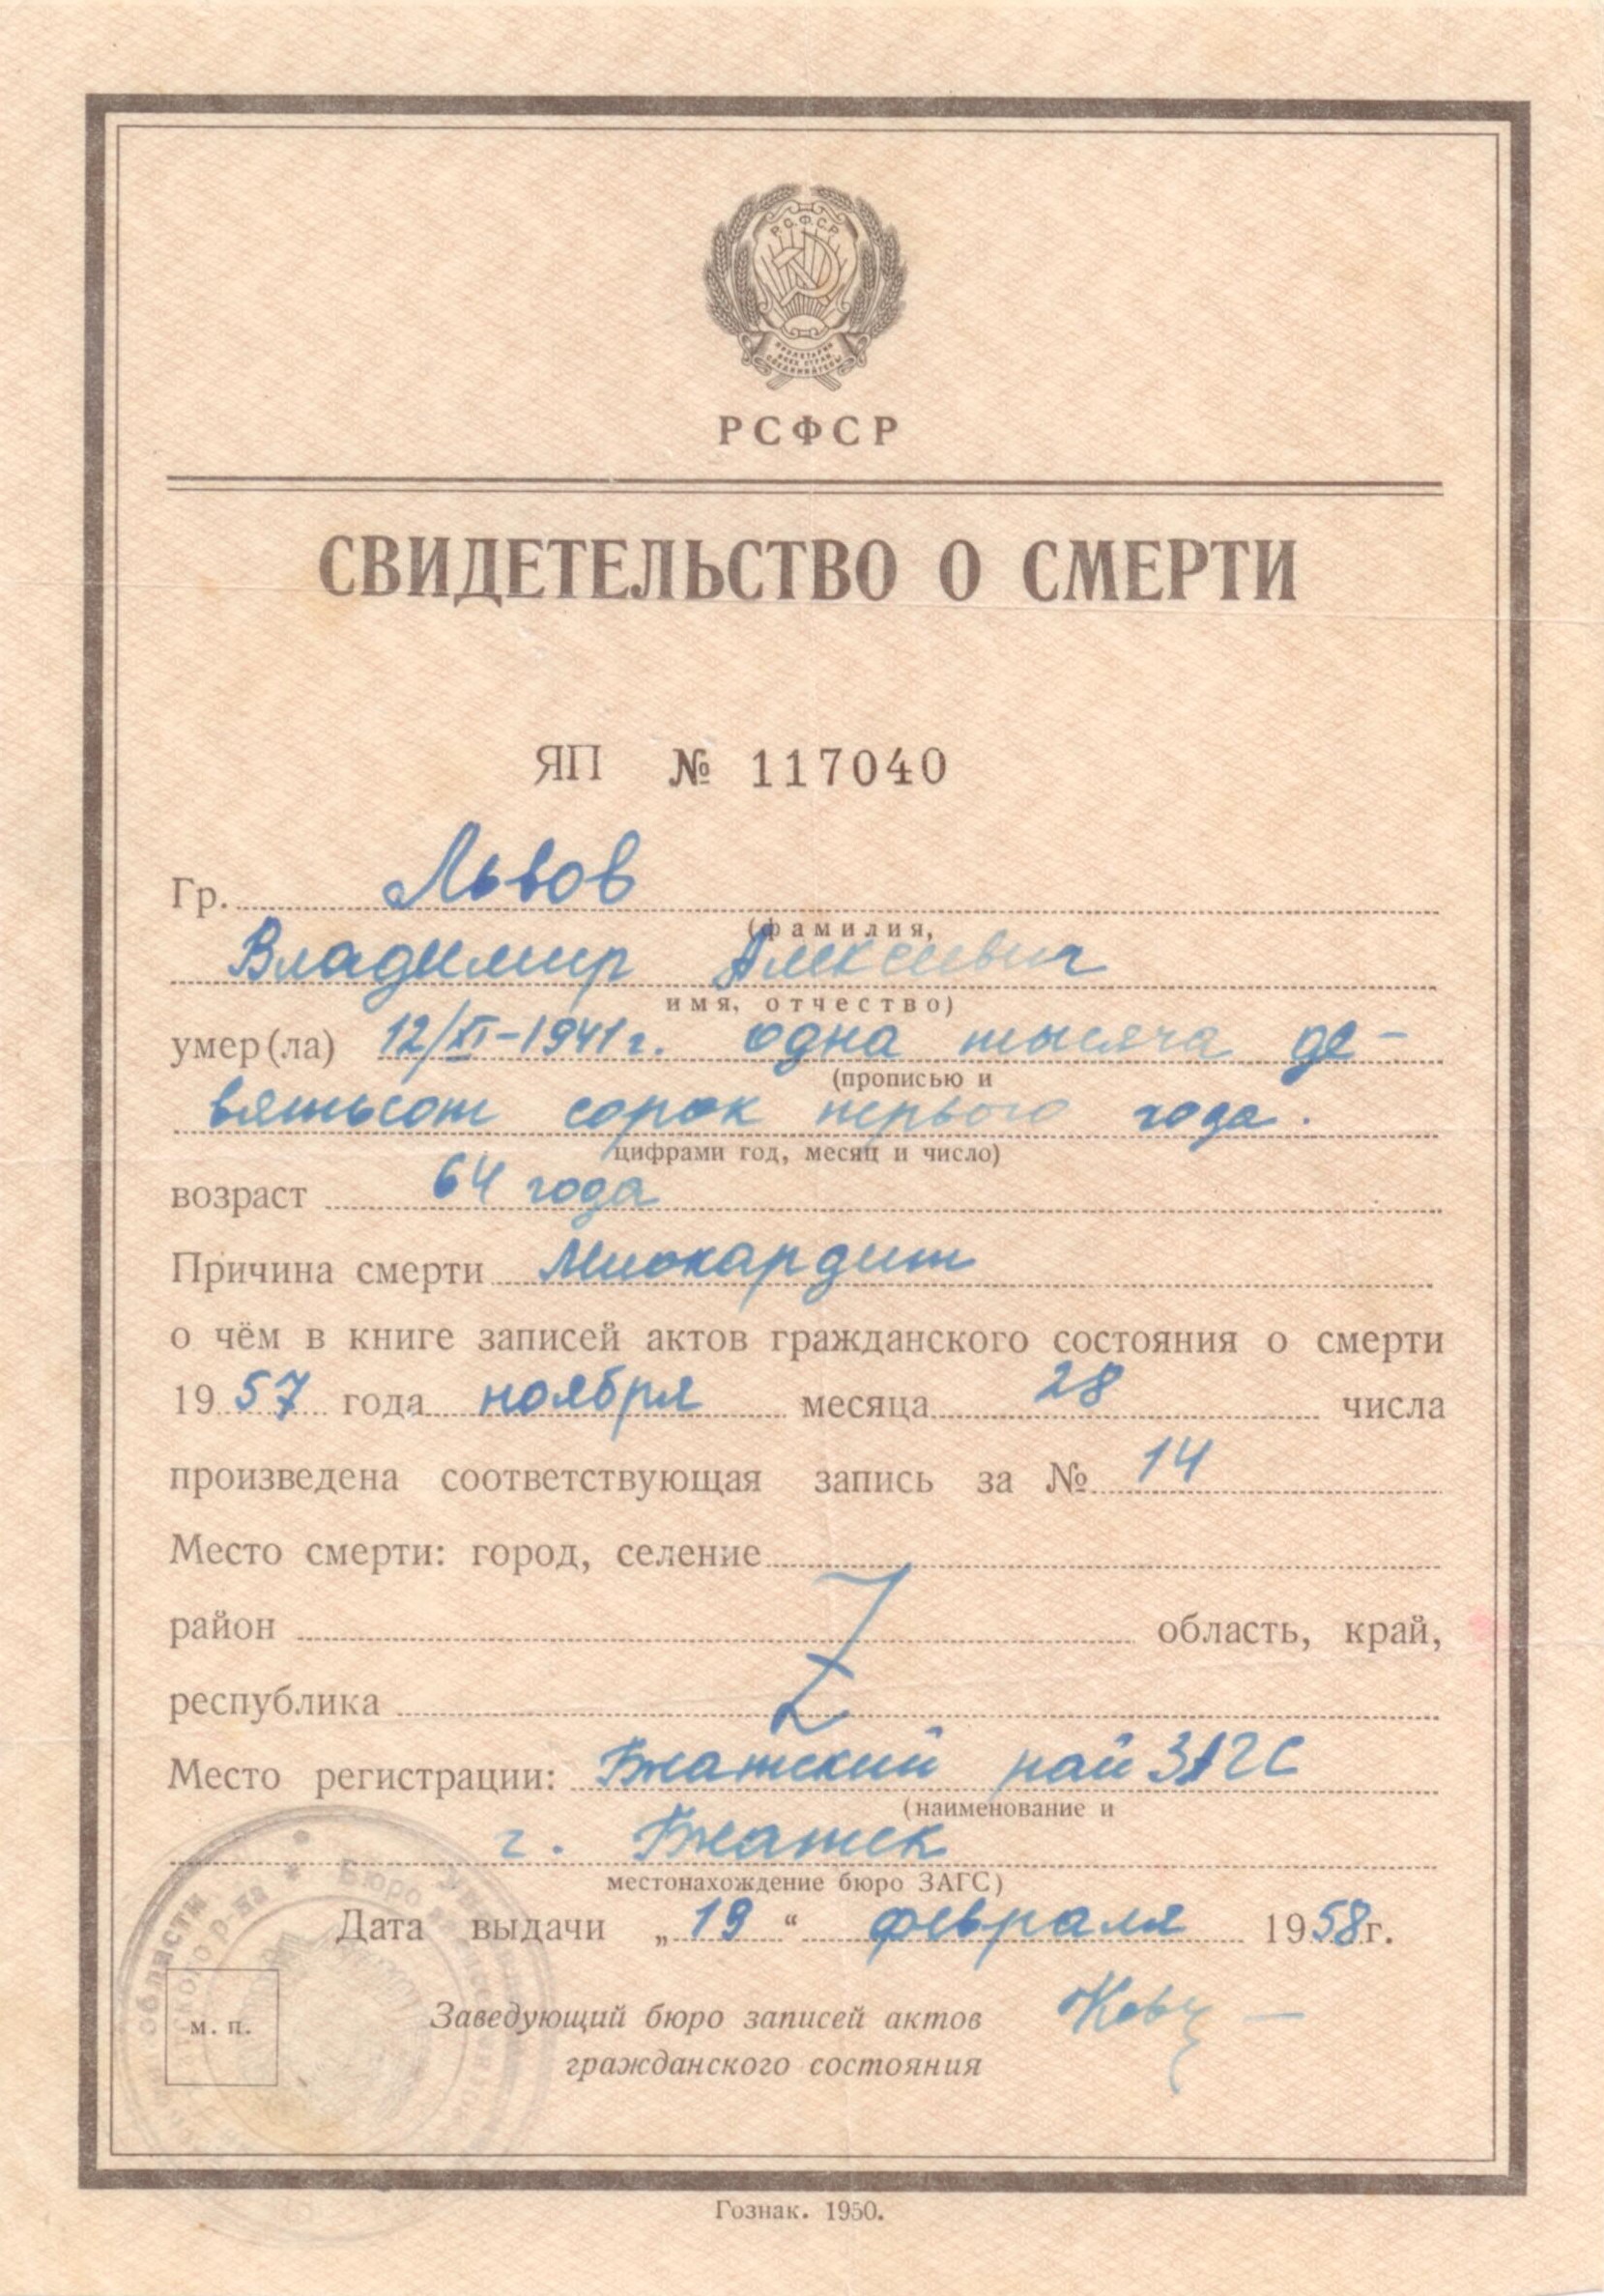 Р.С.Ф.С.Р.
ПРОЛЕТАРИИ
ВСЕХ СТРАН
СОЕДИНЯЙТЕСЬ
РСФСР
СВИДЕТЕЛЬСТВО О СМЕРТИ
ЯП № 117040
Гр. Львов
(фамилия,
Владимир Алексеевич
имя, отчество)
умер(ла) 12/XI-1941г. одна тысяча де-
(прописью и
вятьсот сорок первого года.
цифрами год, месяц и число)
возраст 64 года
Причина смерти Миокардит
о чём в книге записей актов гражданского состояния о смерти
1957 года ноября месяца 28 числа
произведена соответствующая запись за № 14
Место смерти: город, селение
район область, край,
республика Z
Место регистрации: Гжатский рай ЗАГС
(наименование и
г. Гжатск
местонахождение бюро ЗАГС)
Дата выдачи „19“ февраля 1958г.
м. п.
Заведующий бюро записей актов
гражданского состояния
Гознак. 1950.